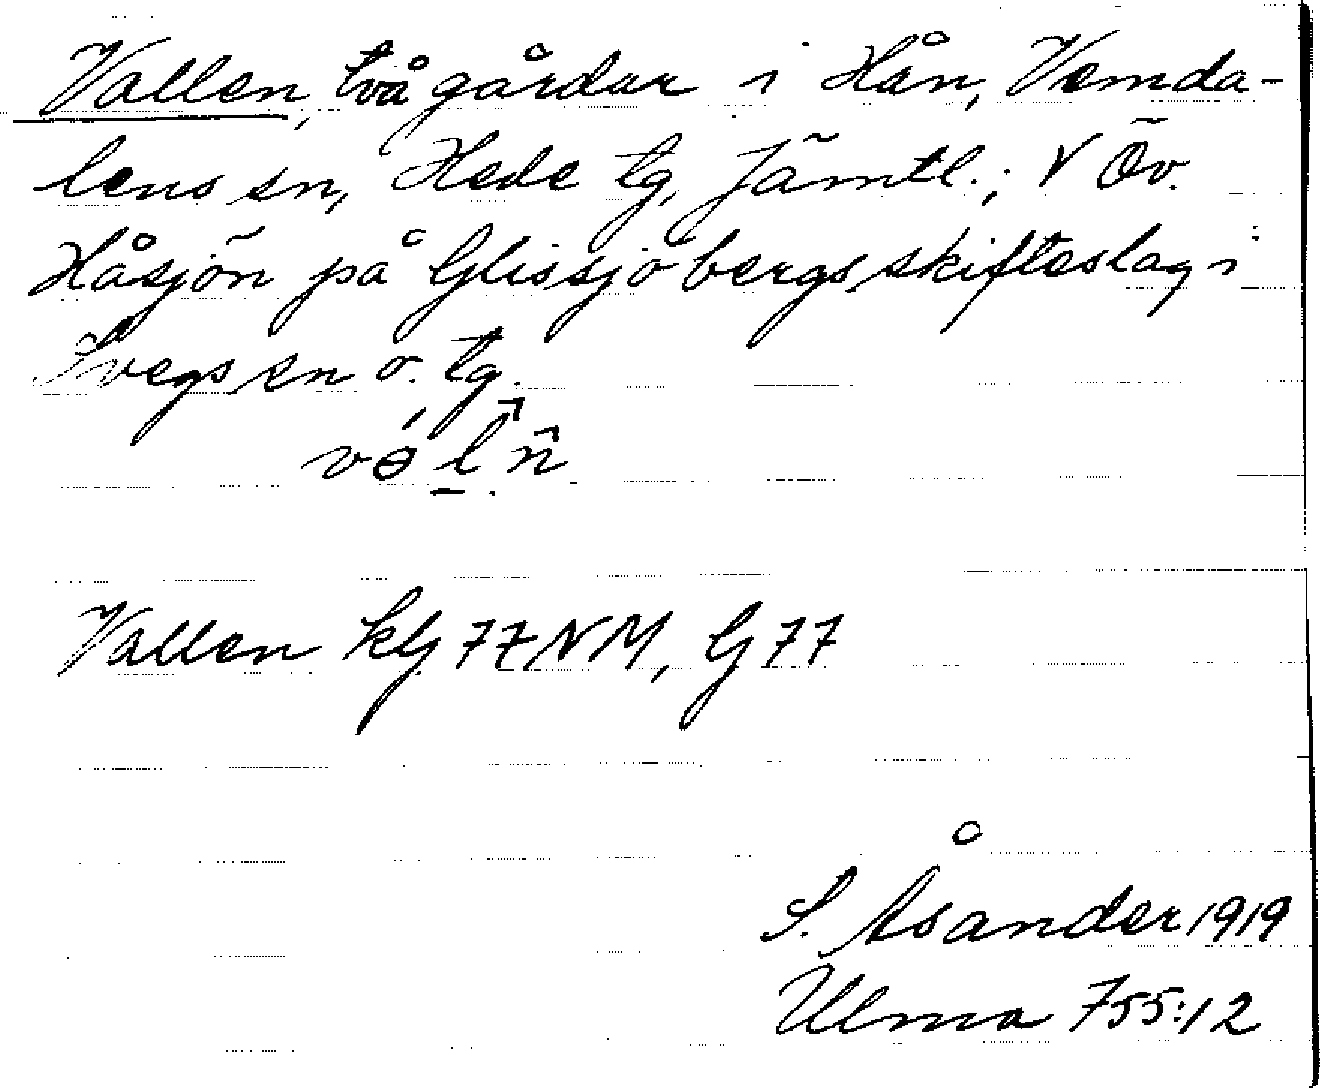 Vallen, två gårdar i Hån, Vemda-
lens sn, Hede tg, Jämtl.; V Öv.
Håsjön på Glissjöbergs skifteslag i
Svegs sn o. tg.
Vallen kG 77 NM, G 77
S. Åsander 1919
Ulma 755:12